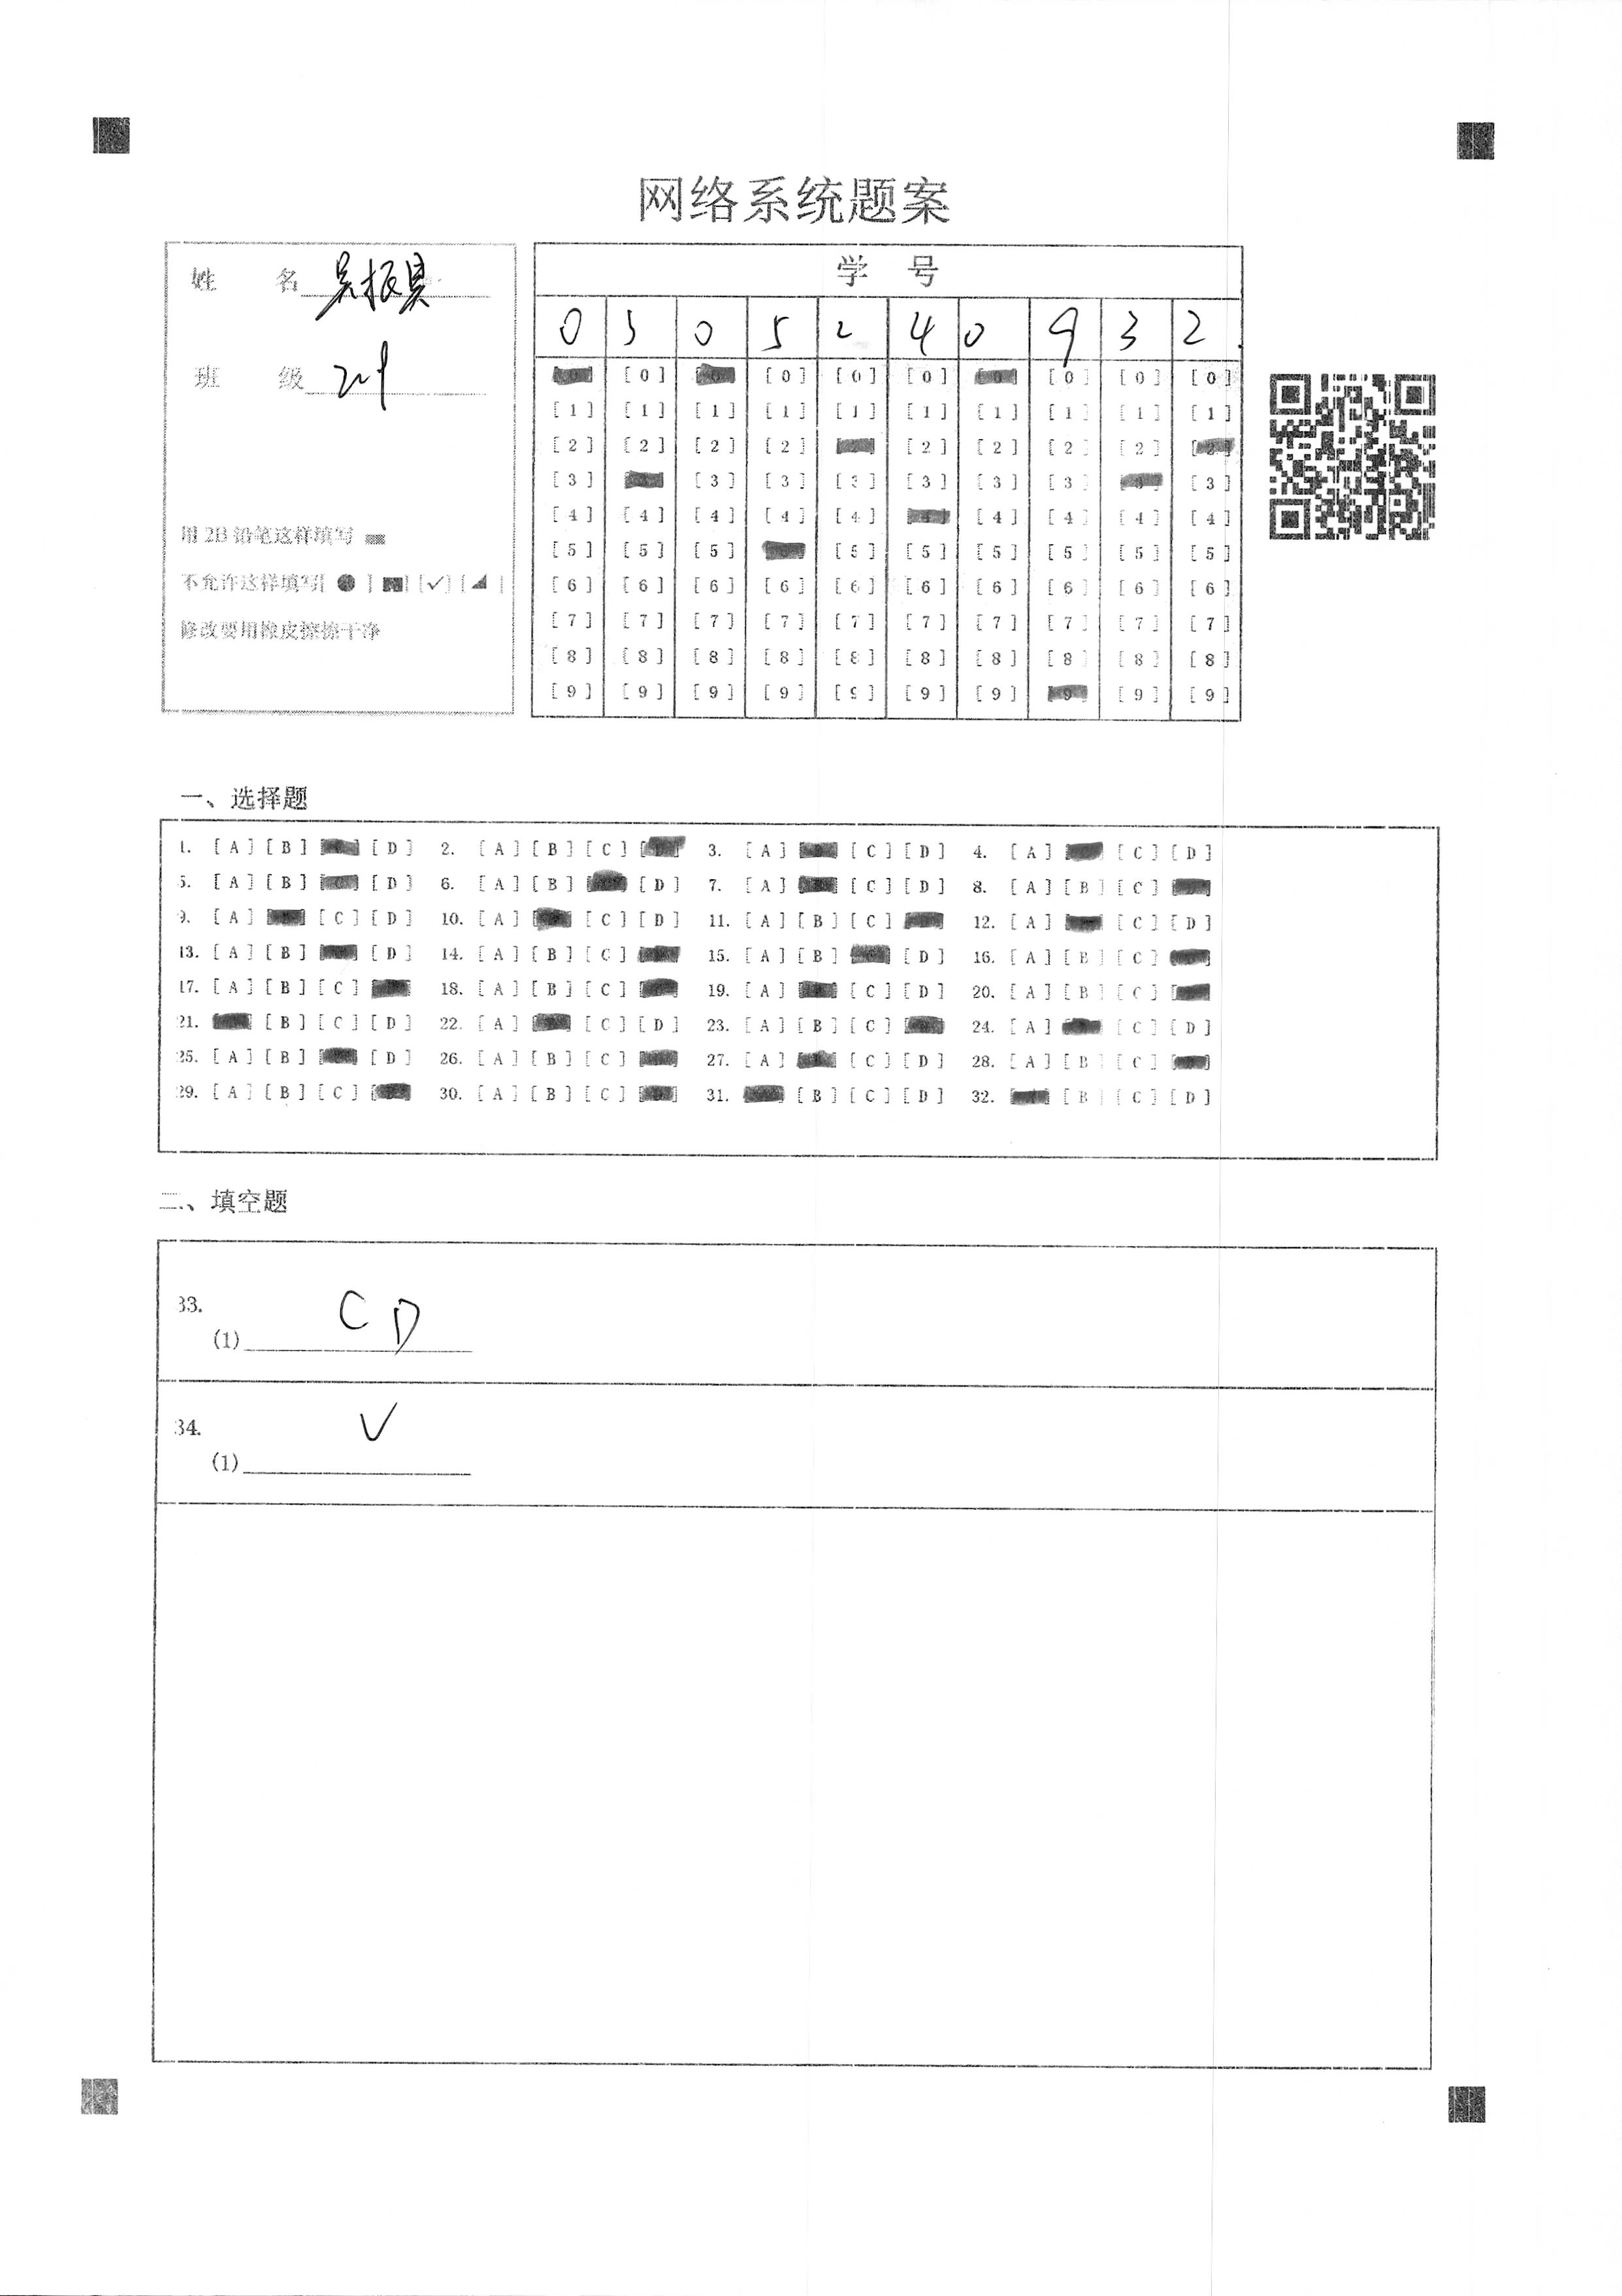 网络系统题案
姓 名 吴振昊
班 级
用 2B 铅笔这样填写
不允许这样填写[ ● ] [■] [✓] [◢ ]
修改要用橡皮擦擦干净
学 号
0 3 0 5 2 4 0 9 3 2
[0] [0] [0] [0] [0] [0] [0] [0] [0] [0]
[1] [1] [1] [1] [1] [1] [1] [1] [1] [1]
[2] [2] [2] [2] [2] [2] [2] [2] [2]
[3] [3] [3] [3] [3] [3] [3] [3] [3]
[4] [4] [4] [4] [4] [4] [4] [4] [4] [4]
[5] [5] [5] [5] [5] [5] [5] [5] [5]
[6] [6] [6] [6] [6] [6] [6] [6] [6] [6]
[7] [7] [7] [7] [7] [7] [7] [7] [7] [7]
[8] [8] [8] [8] [8] [8] [8] [8] [8] [8]
[9] [9] [9] [9] [9] [9] [9] [9] [9] [9]
一、选择题
1. [A] [B] [D] 2. [A] [B] [C] 3. [A] [C] [D] 4. [A] [C] [D]
5. [A] [B] [C] [D] 6. [A] [B] [D] 7. [A] [C] [D] 8. [A] [B] [C]
9. [A] [C] [D] 10. [A] [C] [D] 11. [A] [B] [C] 12. [A] [C] [D]
13. [A] [B] [D] 14. [A] [B] [C] 15. [A] [B] [D] 16. [A] [B] [C]
17. [A] [B] [C] 18. [A] [B] [C] 19. [A] [C] [D] 20. [A] [B] [C]
21. [B] [C] [D] 22. [A] [C] [D] 23. [A] [B] [C] 24. [A] [C] [D]
25. [A] [B] [D] 26. [A] [B] [C] 27. [A] [C] [D] 28. [A] [B] [C]
29. [A] [B] [C] 30. [A] [B] [C] 31. [B] [C] [D] 32. [B] [C] [D]
二、填空题
33.
(1) C D
34.
(1) ✓